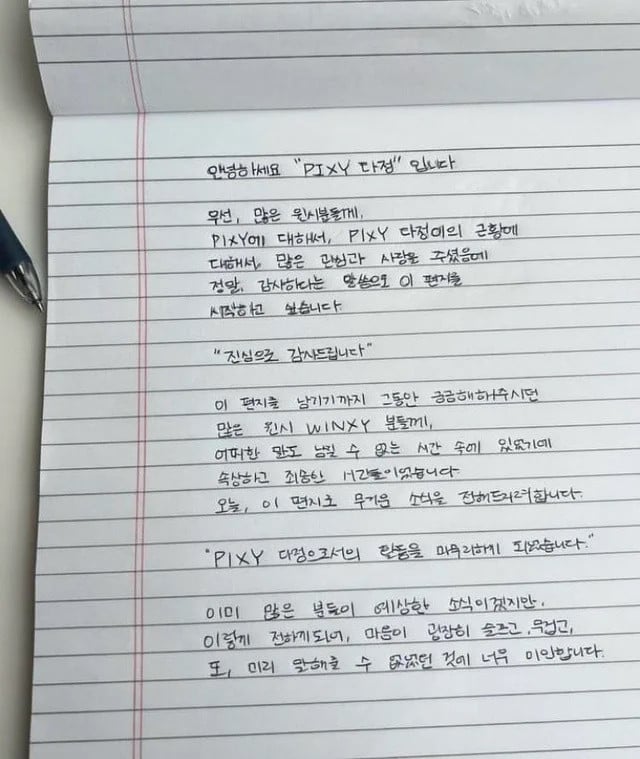 안녕하세요 "PIXY 다정" 입니다
우선, 많은 윈시분들께,
PIXY에 대해서, PIXY 다정이의 근황에
대해서, 많은 관심과 사랑을 주셨음에
정말, 감사하다는 말씀으로 이 편지를
시작하고 싶습니다.
"진심으로 감사드립니다"
이 편지를 남기기까지 그동안 궁금해해주시던
많은 윈시 WINXY 분들께,
어떠한 말도 남길 수 없는 시간 속에 있었기에
속상하고 죄송한 시간들이었습니다.
오늘, 이 편지로 무거운 소식을 전해드리려합니다.
"PIXY 다정으로서의 활동을 마무리하게 되었습니다."
이미 많은 분들이 예상한 소식이겠지만,
이렇게 전하게되어, 마음이 굉장히 슬프고, 무겁고,
또, 미리 말해줄 수 없었던 것에 너무 미안합니다.